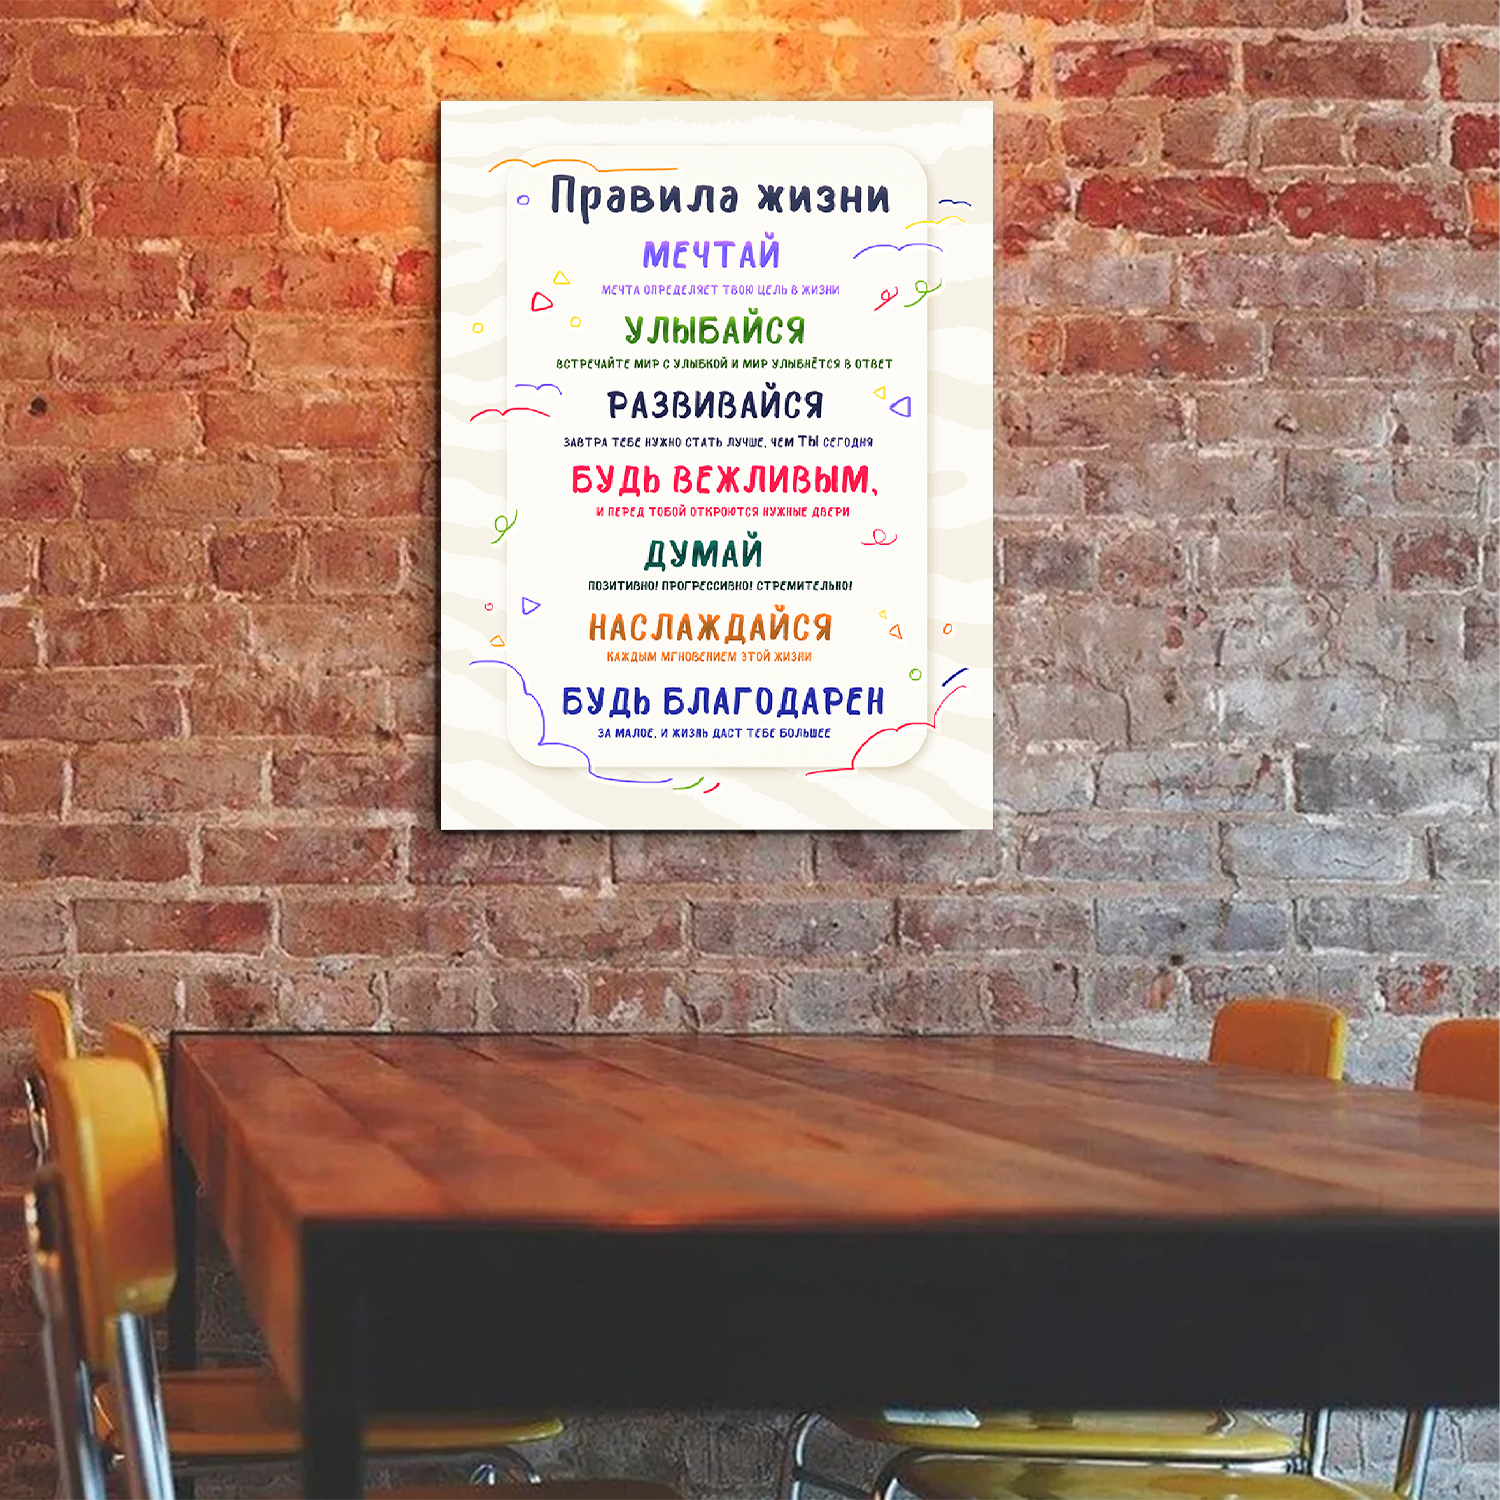 Правила жизни
МЕЧТАЙ
МЕЧТА ОПРЕДЕЛЯЕТ ТВОЮ ЦЕЛЬ В ЖИЗНИ
УЛЫБАЙСЯ
ВСТРЕЧАЙТЕ МИР С УЛЫБКОЙ И МИР УЛЫБНЁТСЯ В ОТВЕТ
РАЗВИВАЙСЯ
ЗАВТРА ТЕБЕ НУЖНО СТАТЬ ЛУЧШЕ, ЧЕМ ТЫ СЕГОДНЯ
БУДЬ ВЕЖЛИВЫМ,
И ПЕРЕД ТОБОЙ ОТКРОЮТСЯ НУЖНЫЕ ДВЕРИ
ДУМАЙ
ПОЗИТИВНО! ПРОГРЕССИВНО! СТРЕМИТЕЛЬНО!
НАСЛАЖДАЙСЯ
КАЖДЫМ МГНОВЕНИЕМ ЭТОЙ ЖИЗНИ
БУДЬ БЛАГОДАРЕН
ЗА МАЛОЕ, И ЖИЗНЬ ДАСТ ТЕБЕ БОЛЬШЕЕ